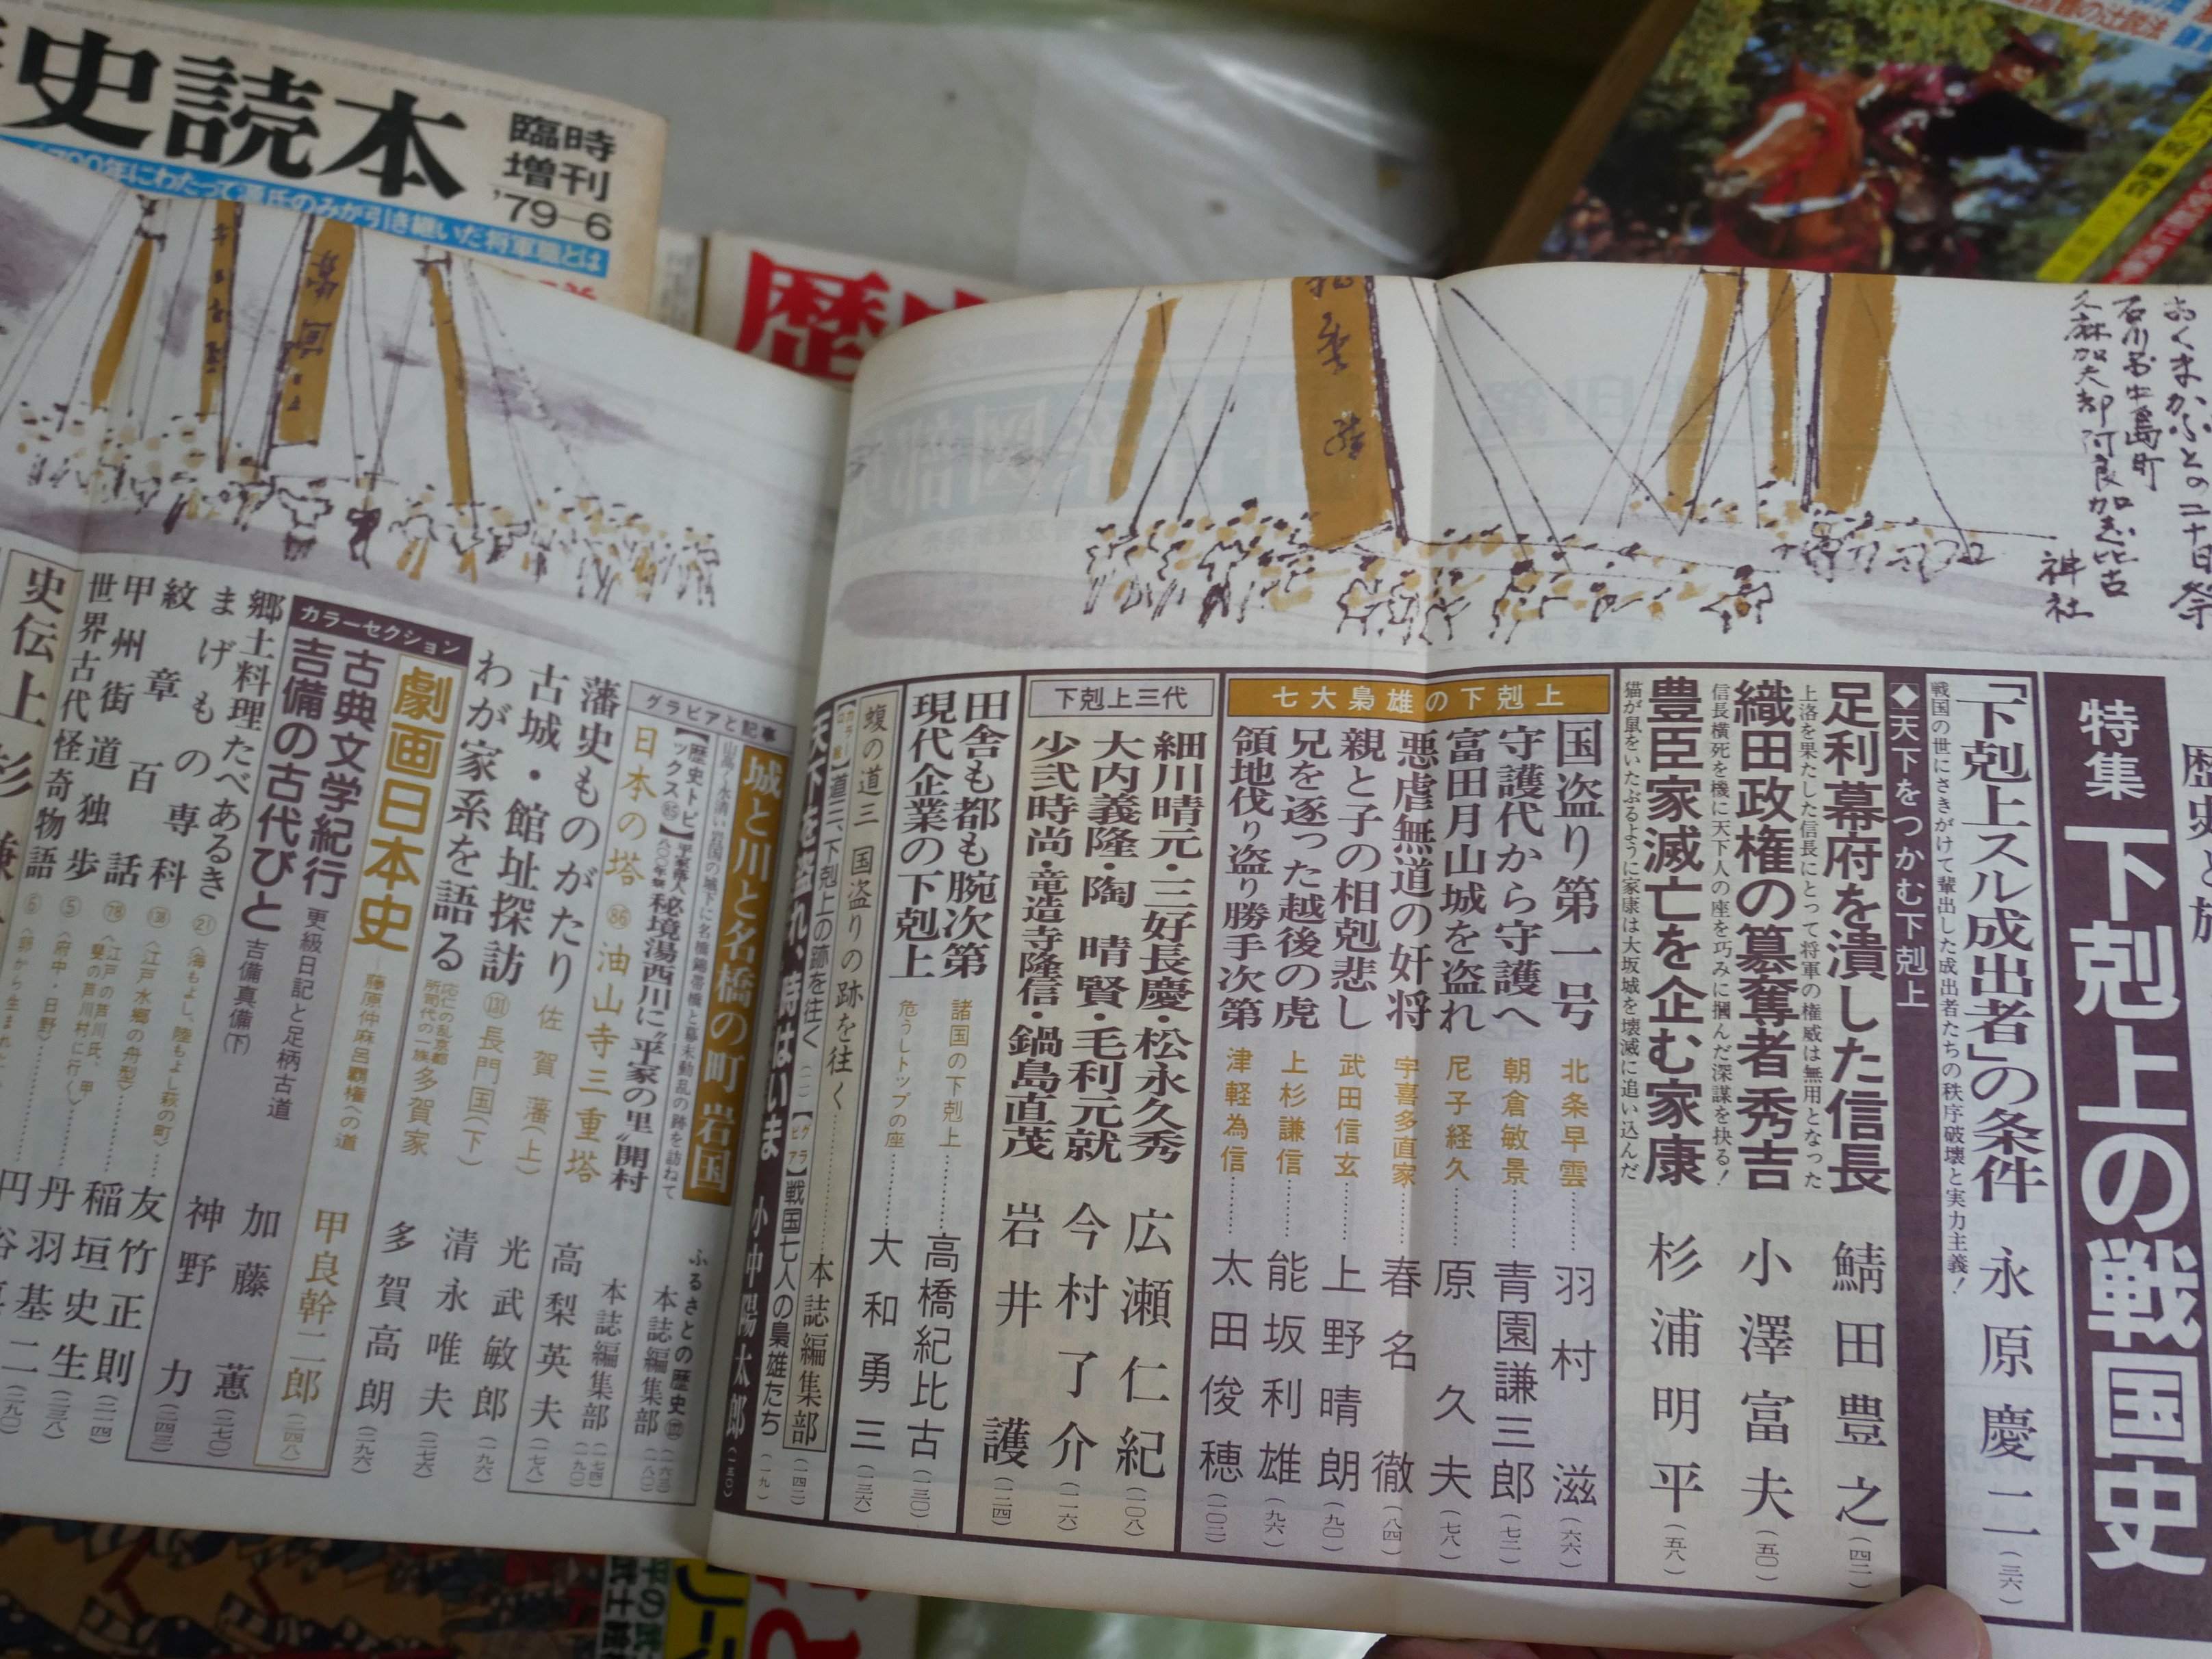 史読本
臨時
増刊
'79-6
700年にわたって源氏のみが引き継いだ将軍職とは
歴史
おくまかぶとの二十日祭
石川県中島町
久麻加夫都阿良加志比古
神社
特集 下剋上の戦国史
「下剋上スル成出者」の条件 永原慶二(三六)
戦国の世にさきがけて輩出した成出者たちの秩序破壊と実力主義!
◆天下をつかむ下剋上
足利幕府を潰した信長 鯖田豊之(四二)
上洛を果たした信長にとって将軍の権威は無用となった
織田政権の簒奪者秀吉 小澤富夫(五〇)
信長横死を機に天下人の座を巧みに摑んだ深謀を抉る!
豊臣家滅亡を企む家康 杉浦明平(五八)
猫が鼠をいたぶるように家康は大坂城を壊滅に追い込んだ
七大梟雄の下剋上
国盗り第一号 北条早雲……羽村滋(六六)
守護代から守護へ 朝倉敏景……青園謙三郎(七二)
富田月山城を盗れ 尼子経久……原久夫(七八)
悪虐無道の奸将 宇喜多直家……春名徹(八四)
親と子の相剋悲し 武田信玄……上野晴朗(九〇)
兄を逐った越後の虎 上杉謙信……能坂利雄(九六)
領地伐り盗り勝手次第 津軽為信……太田俊穂(一〇二)
下剋上三代
細川晴元・三好長慶・松永久秀 広瀬仁紀(一〇八)
大内義隆・陶晴賢・毛利元就 今村了介(一一六)
少弐時尚・竜造寺隆信・鍋島直茂 岩井護(一二四)
田舎も都も腕次第 諸国の下剋上……高橋紀比古(一三〇)
現代企業の下剋上 危うしトップの座……大和勇三(一三六)
蝮の道三 国盗りの跡を往く……本誌編集部(一四二)
【カラー口絵】道三、下剋上の跡を往く(一一)【グラビア】戦国七人の梟雄たち(一九)
天下を盗れ、時はいま 小中陽太郎(一五〇)
グラビアと記事
城と川と名橋の町 岩国 ふるさとの歴史
山高く水清い岩国の城下に名橋錦帯橋と幕末動乱の跡を訪ねて 本誌編集部
【歴史トピックス】平家落人秘境湯西川に“平家の里”開村 本誌編集部
日本の塔 86 油山寺三重塔
藩史ものがたり 佐賀藩(上) 高梨英夫(一七八)
古城・館址探訪 131 長門国(下) 光武敏郎(一九六)
わが家系を語る 応仁の乱京都所司代の一族 多賀家 清永唯夫(二七六)
多賀高朗(二九六)
カラーセクション
劇画日本史 藤原仲麻呂覇権への道 甲良幹二郎(二四八)
古典文学紀行 更級日記と足柄古道 加藤蕙(二七〇)
吉備の古代びと 吉備真備(下) 神野力(二四三)
郷土料理たべあるき 21 (海もよし、陸もよし萩の町)…友竹正則
まげもの専科 138 (江戸水郷の舟型)……稲垣史生
紋章百話 78
甲州街道独歩 5 (府中・日野)……丹羽基二(二三八)
世界古代怪奇物語 6
史伝上杉謙